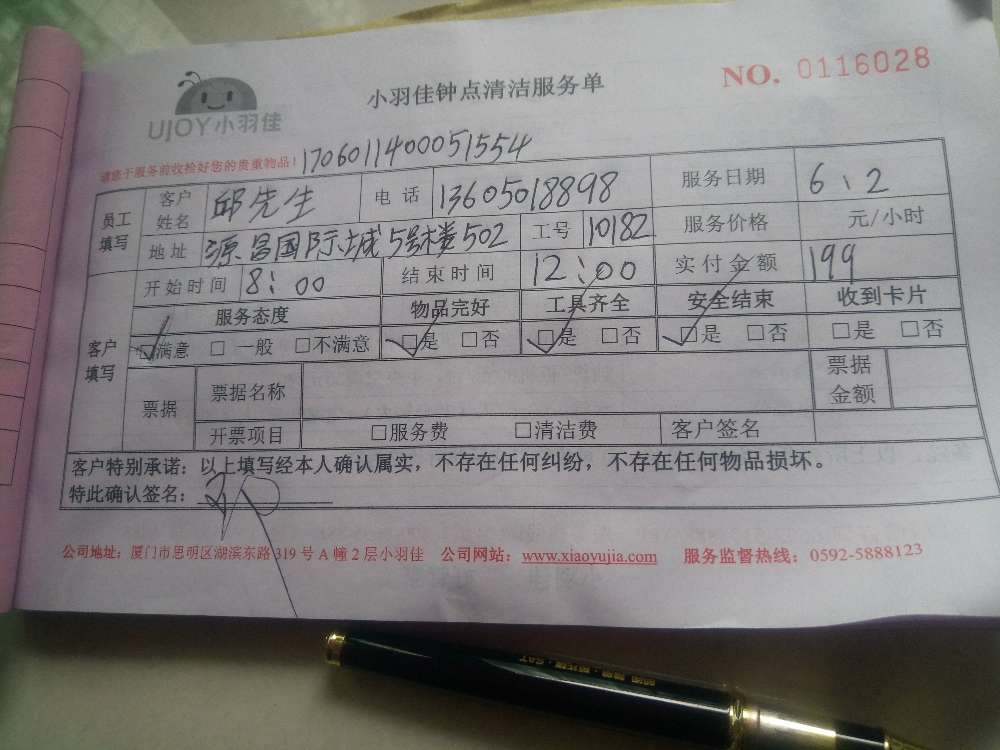 UJOY小羽佳
小羽佳钟点清洁服务单
NO. 0116028
请您于服务前收拾好您的贵重物品! 170601140005 1554
员工填写 客户姓名 邱先生 电话 13605018898 服务日期 6、2
地址 源昌国际城5号楼502 工号 10182 服务价格 元/小时
开始时间 8:00 结束时间 12:00 实付金额 199
客户填写 服务态度 物品完好 工具齐全 安全结束 收到卡片
☑满意 □一般 □不满意 ☑是 □否 ☑是 □否 ☑是 □否 □是 □否
票据 票据名称 票据金额
开票项目 □服务费 □清洁费 客户签名
客户特别承诺:以上填写经本人确认属实,不存在任何纠纷,不存在任何物品损坏。
特此确认签名:
公司地址:厦门市思明区湖滨东路319号A幢2层小羽佳 公司网站:www.xiaoyujia.com 服务监督热线:0592-5888123